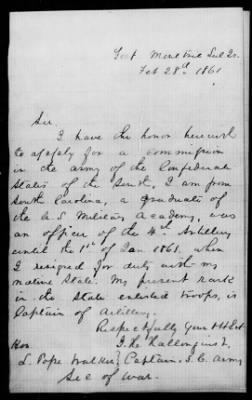 Fort Moultrie Sul Is.
Feb 28th 1861
Sir.
I have the honor herewith
to apply for a commission
in the army of the Confederate
States of the South, I am from
South Carolina, a graduate of
the U.S. Military Academy, was
an officer of the 4th Artillery
until the 1st of Jan 1861. when
I resigned for duty with my
native State. My present rank
in the State enlisted troops, is
Captain of Artillery.
Respectfully Your Obt Svt
Hon. J. H. Hallonquist,
L. Pope Walker} Captain S.C. Army
Sec of War.